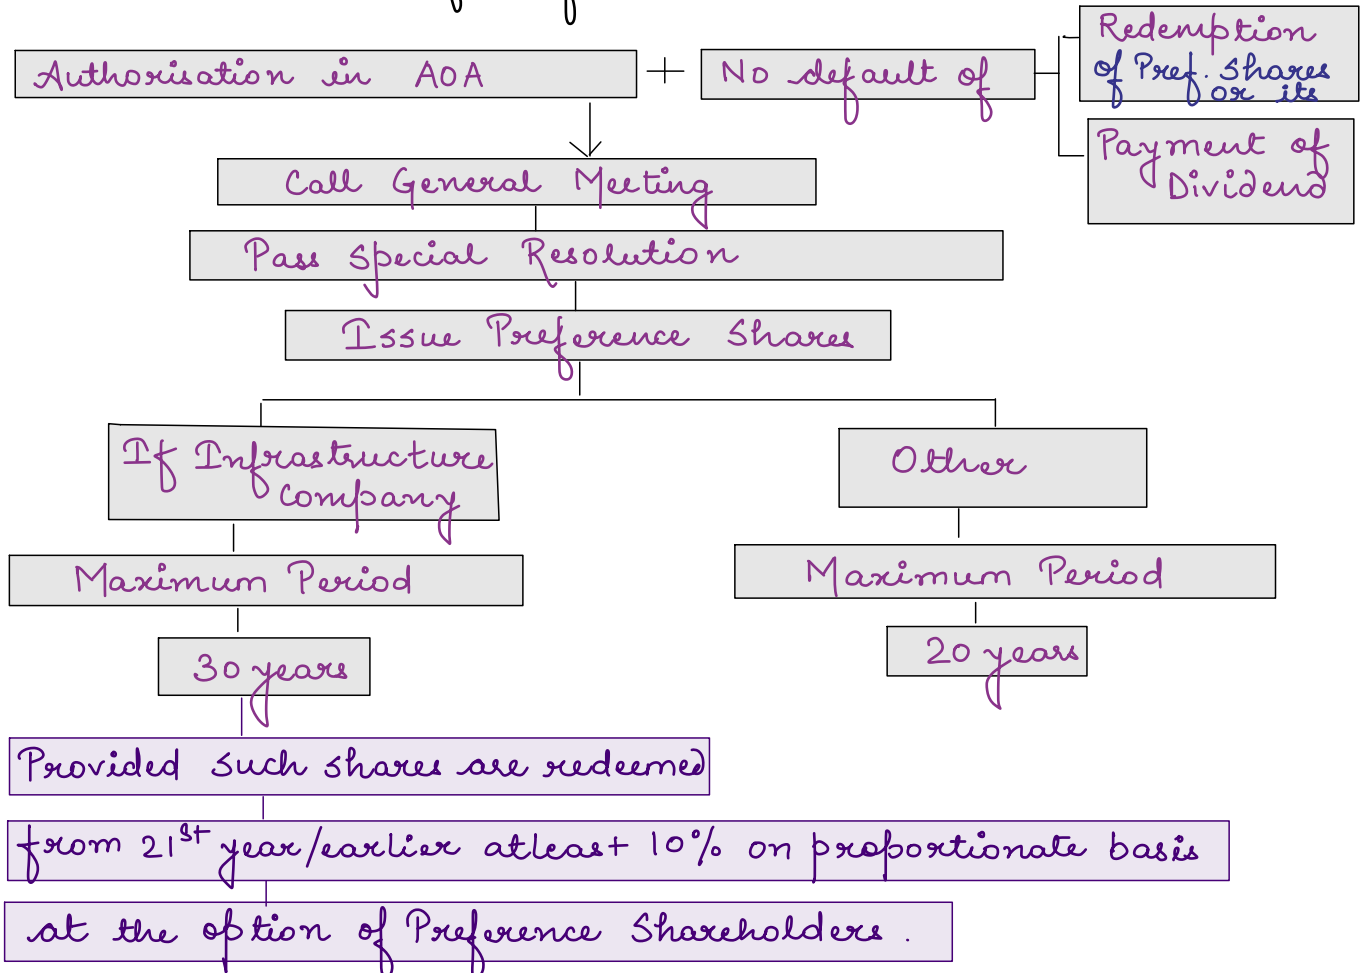 Authorisation in AOA + No default of
Redemption
of Pref. Shares
or its
Payment of
Dividend
Call General Meeting
Pass Special Resolution
Issue Preference Shares
If Infrastructure
Company
Other
Maximum Period
Maximum Period
30 years
20 years
Provided such shares are redeemed
from 21st year/earlier atleast 10% on proportionate basis
at the option of Preference Shareholders.